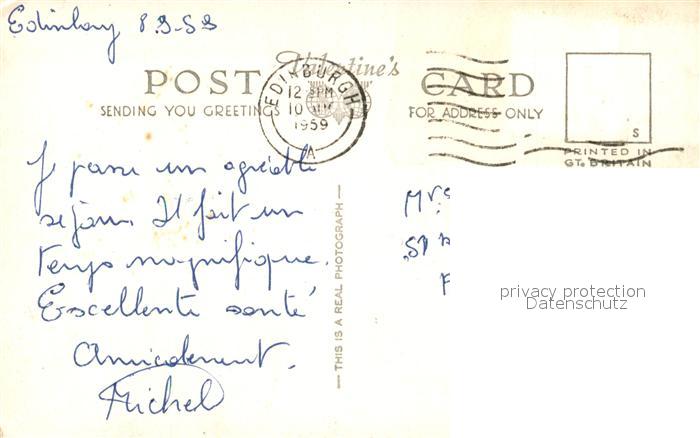 Edinburg 8.9-59
Valentine's
POST CARD
SENDING YOU GREETINGS FOR ADDRESS ONLY
EDINBURGH
12 PM
10
1959
A
S
PRINTED IN
GT. BRITAIN
Je passe un agréable
séjour. Il fait un
temps magnifique.
Excellente santé
Amicalement.
Michel
— THIS IS A REAL PHOTOGRAPH —
Mrs
privacy protection
Datenschutz